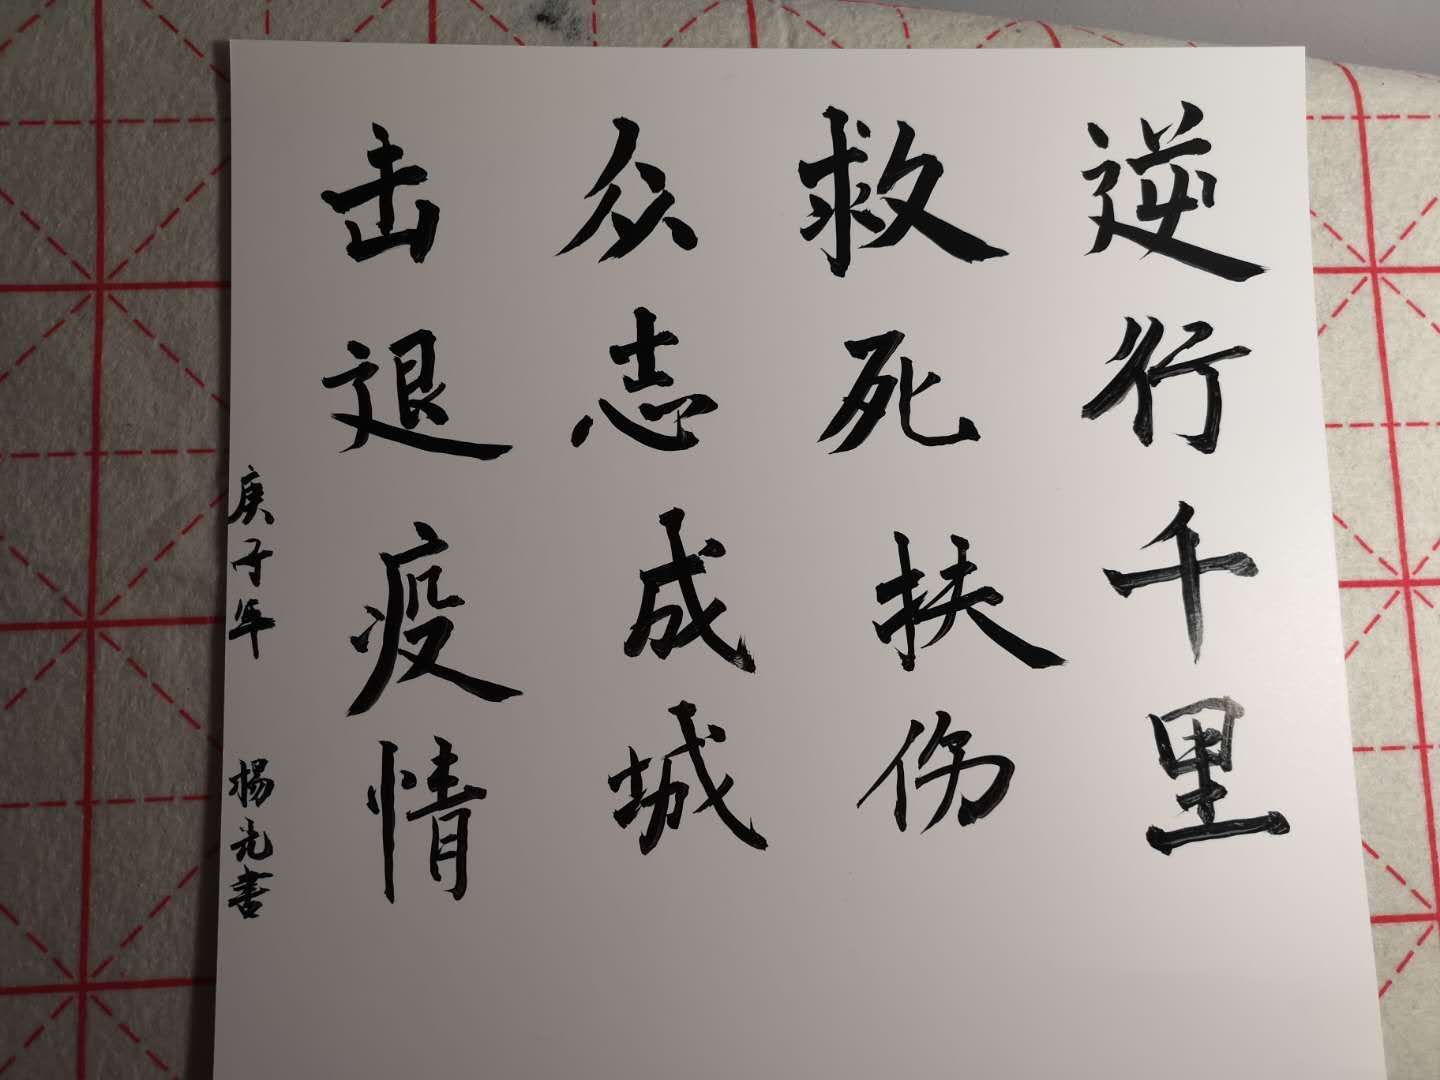 逆行千里
救死扶伤
众志成城
击退疫情
庚子年 杨光书